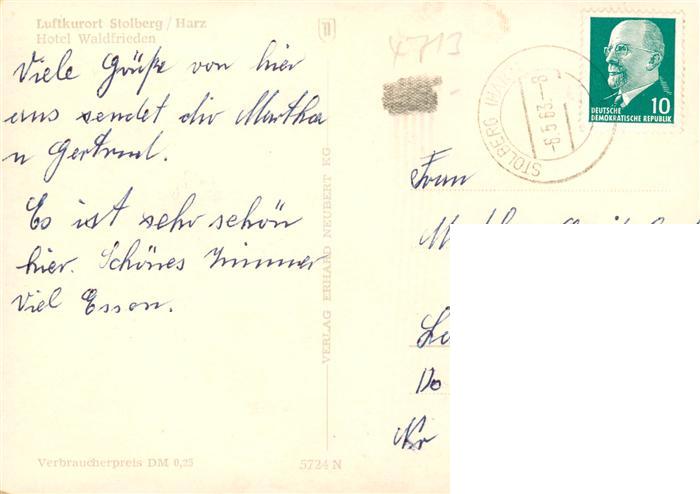 Luftkurort Stolberg / Harz
Hotel Waldfrieden
Viele Grüße von hier
aus sendet dir Martha
u Gertrud.
Es ist sehr schön
hier. Schönes Zimmer
viel Essen.
Verbraucherpreis DM 0,25
5724 N
VERLAG ERHARD NEUBERT KG
4713
STOLBERG (HARZ)
-6.5.63.-8
DEUTSCHE
DEMOKRATISCHE REPUBLIK
10
Frau
Nr